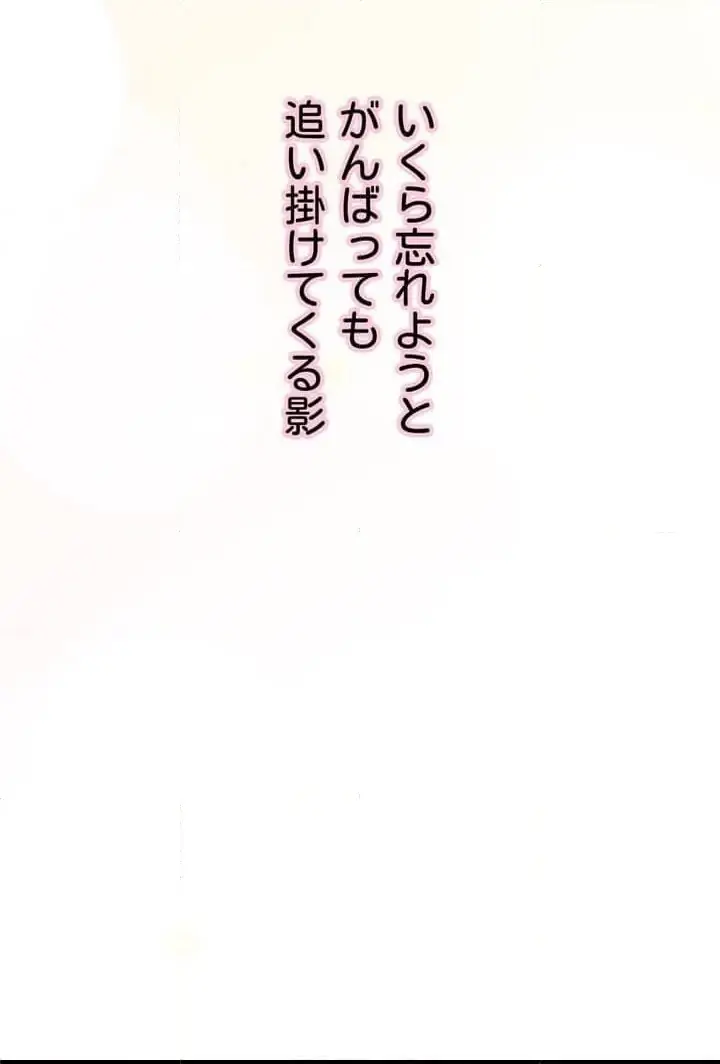 いくら忘れようと
がんばっても
追い掛けてくる影